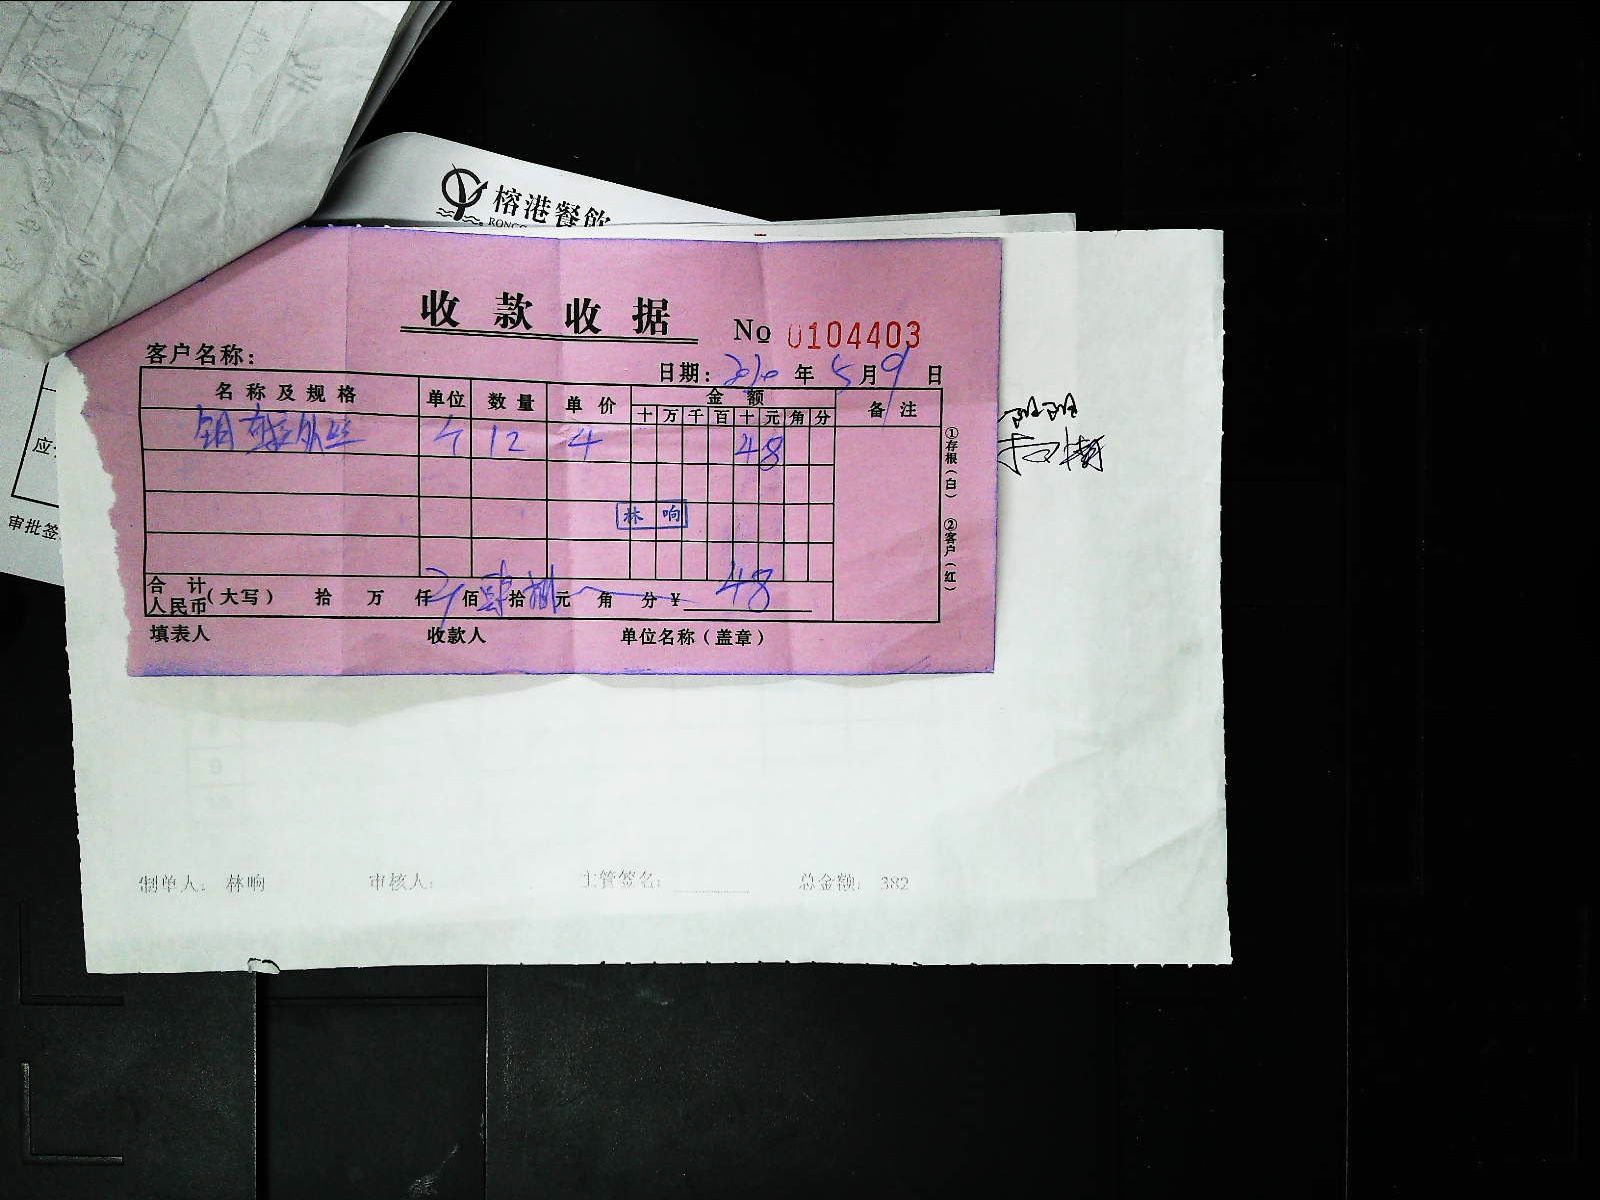 榕港餐飲
收款收据
No 0104403
客户名称：
日期： 2010 年 5 月 9 日
名称及规格 单位 数量 单价 金额 备注
十 万 千 百 十 元 角 分
外丝 个 12 4 48
林响
合计人民币（大写） 拾 万 仟 佰 肆 拾 捌 元 角 分 ¥ 48
填表人 收款人 单位名称（盖章）
①存根（白） ②客户（红）
应
审批签
制单人： 林响 审核人： 主管签名： 总金额： 382